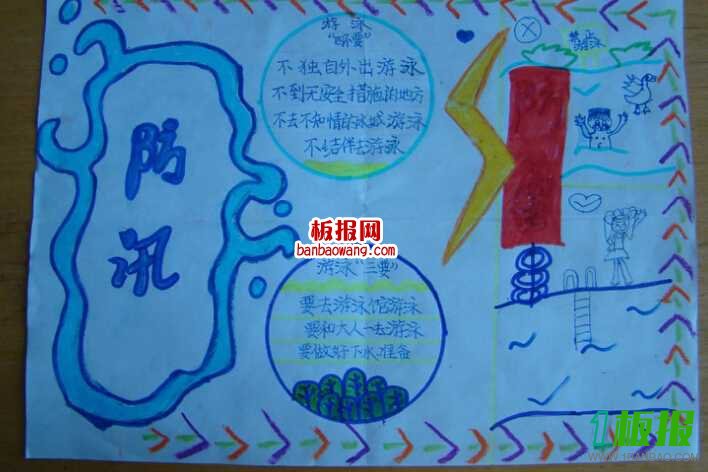 防汛
游泳
"四不要"
不独自外出游泳
不到无安全措施的地方
不去不知情的水域游泳
不结伴去游泳
板报网
banbaowang.com
游泳"三要"
要去游泳馆游泳
要和大人一去游泳
要做好下水准备
禁止
游泳
1板报
WWW.1BANBAO.COM